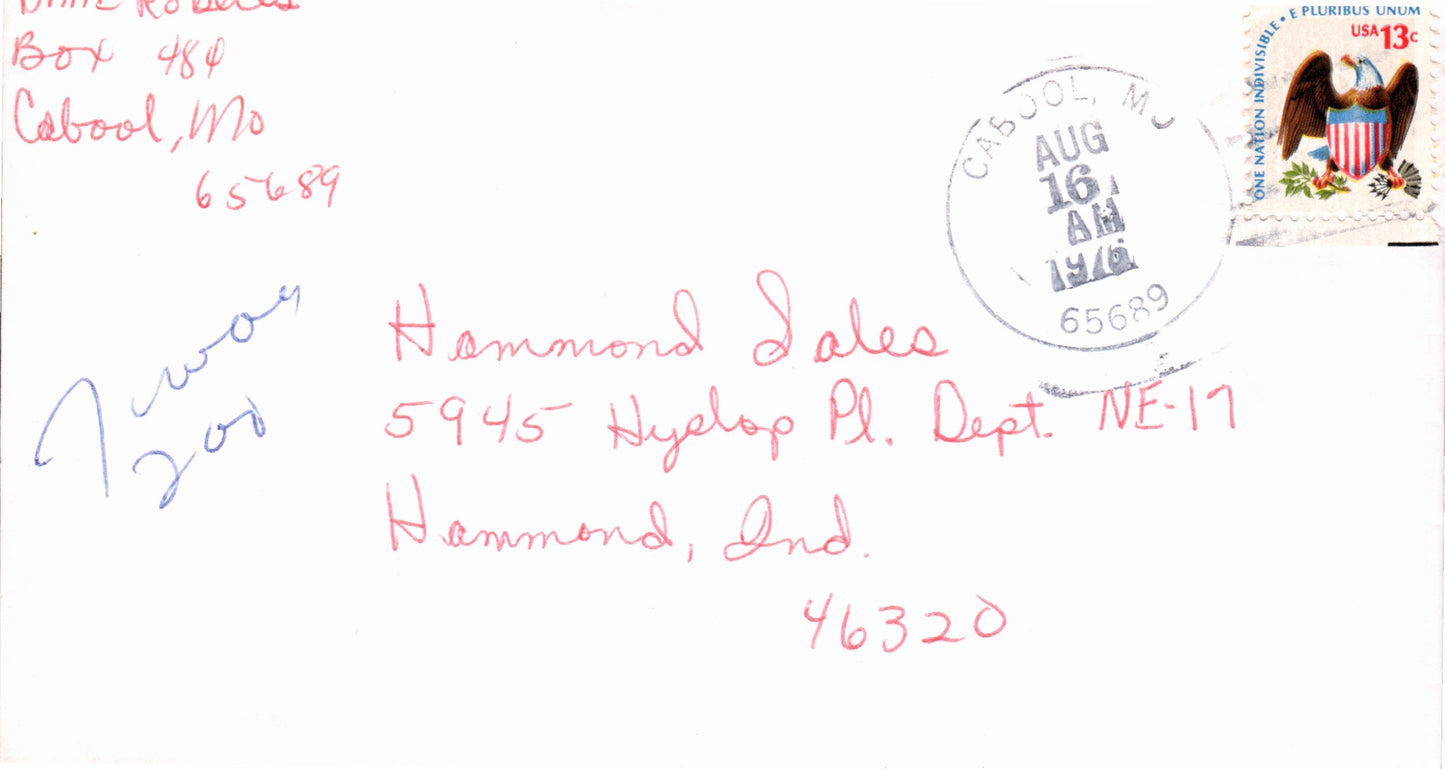 Roberts
Box 484
Cabool, Mo
65689
E PLURIBUS UNUM
ONE NATION INDIVISIBLE
USA 13c
CABOOL, MO
AUG
16
AM
1976
65689
Hammond Sales
5945 Hyslop Pl. Dept. NE-17
Hammond, Ind.
46320